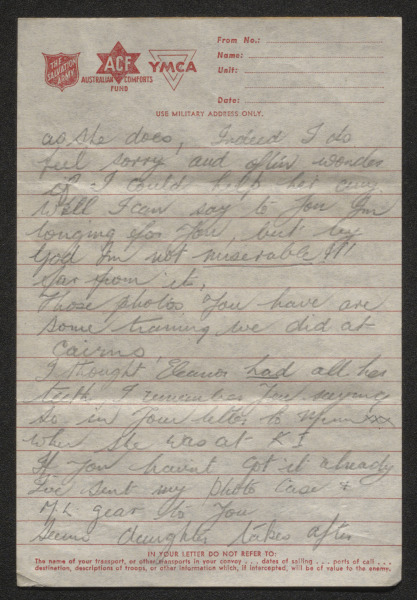 THE SALVATION ARMY
ACF
AUSTRALIAN COMFORTS FUND
YMCA
From No.:
Name:
Unit:
Date:
USE MILITARY ADDRESS ONLY.
as she does, Indeed I do
feel sorry and often wonder
if I could help her any.
Well I can say to you I'm
longing for you, but by
God I'm not miserable !!!
far from it,
Those photos you have are
some training we did at
Cairns,
I thought Eleanor had all her
teeth I remember you saying
so in your letter to xxx
when she was at K I
If you havint got it already
I've sent my photo case &
gear to you
Seems daughter takes after
IN YOUR LETTER DO NOT REFER TO:
The name of your transport, or other transports in your convoy . . . dates of sailing . . . ports of call . . .
destination, descriptions of troops, or other information which, if intercepted, will be of value to the enemy.